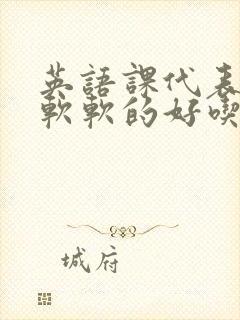 英語課代表
軟軟的好喫
城府